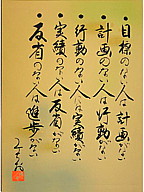 ・目標のない人は計画がない
・計画のない人は行動がない
・行動のない人は実績がない
・実績のない人は反省がない
・反省のない人は進歩がない